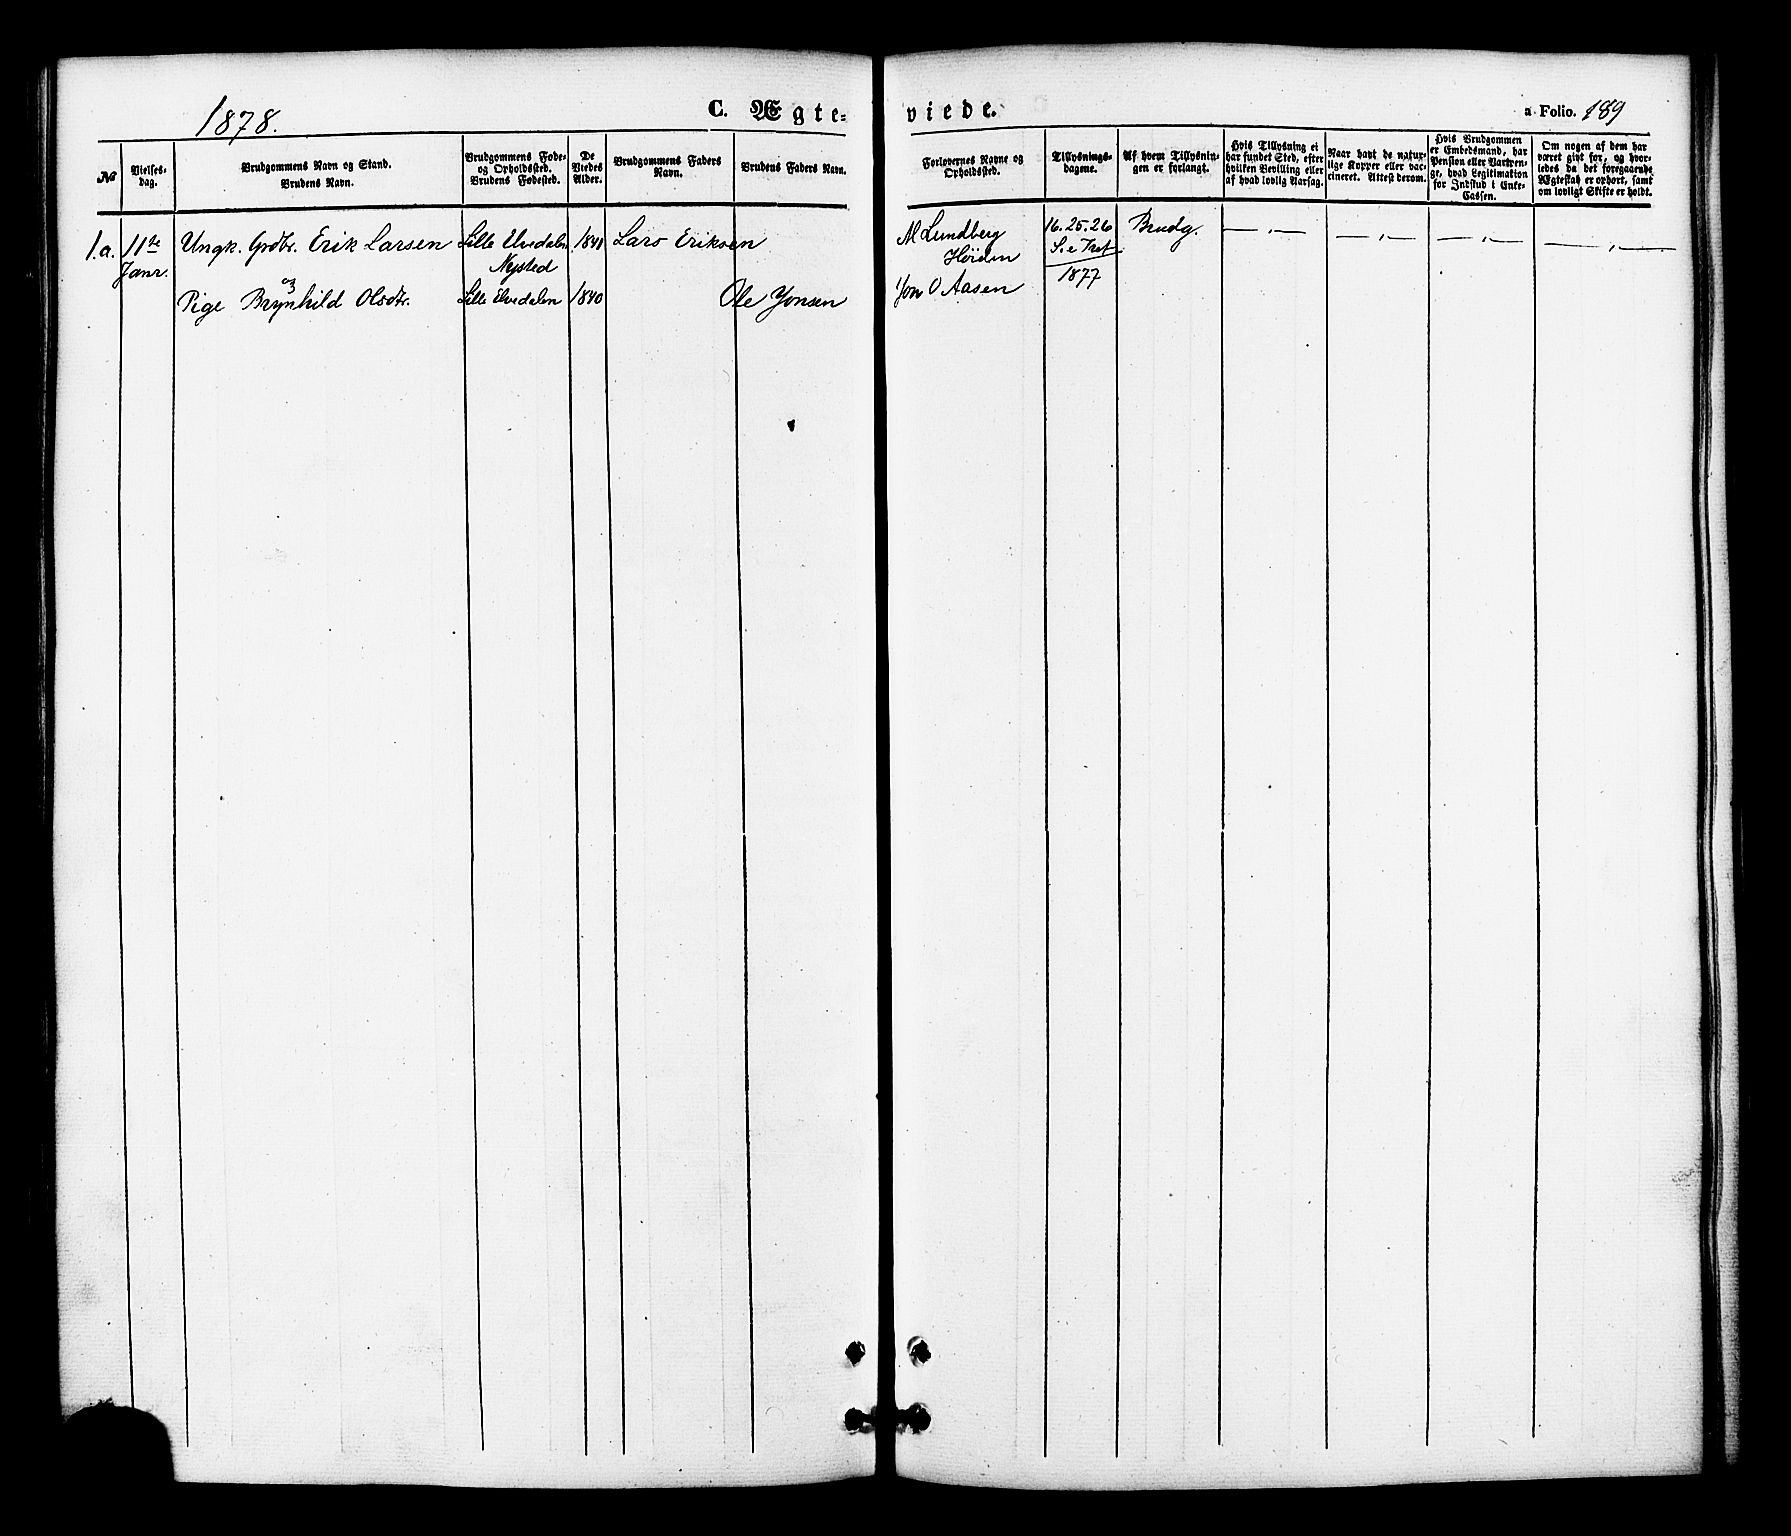 1878.
C. Ægte-
viede.
a Folio. 189
No
Vielses-
dag.
Brudgommens Navn og Stand.
Brudens Navn.
Brudgommens Føde-
og Opholdssted.
Brudens Fødested.
De
Viedes
Alder.
Brudgommens Faders
Navn.
Brudens Faders Navn.
Forlovernes Navne og
Opholdssted.
Tillysnings-
dagene.
Af hvem Tillysnin-
gen er forlangt.
Hvis Tillysning ei
har fundet Sted, efter
hvilken Bevilling eller
af hvad lovlig Aarsag.
Naar havt de natur-
lige Kopper eller vac-
cineret. Attest derom.
Hvis Brudgommen
er Embedsmand, har
Pension eller Vartpen-
ge, hvad Legitimation
for Indskud i Enke-
Cassen.
Om nogen af dem har
været givt før, og hvor-
ledes da det foregaaende
Ægteskab er ophørt, samt
om lovligt Skifte er holdt.
1.a. 11te Ungk. Grdbr. Erik Larsen Lille Elvedalen 1840 Lars Eriksen
Janr. Nysted
og
Pige Brynhild Olsdtr. Lille Elvedalen 1840 Ole Jonsen
M Lundberg 16. 25. 26 Brudg. — „ — — „ — — „ — — „ —
Høiden S. e Tref
Jon O Aasen 1877